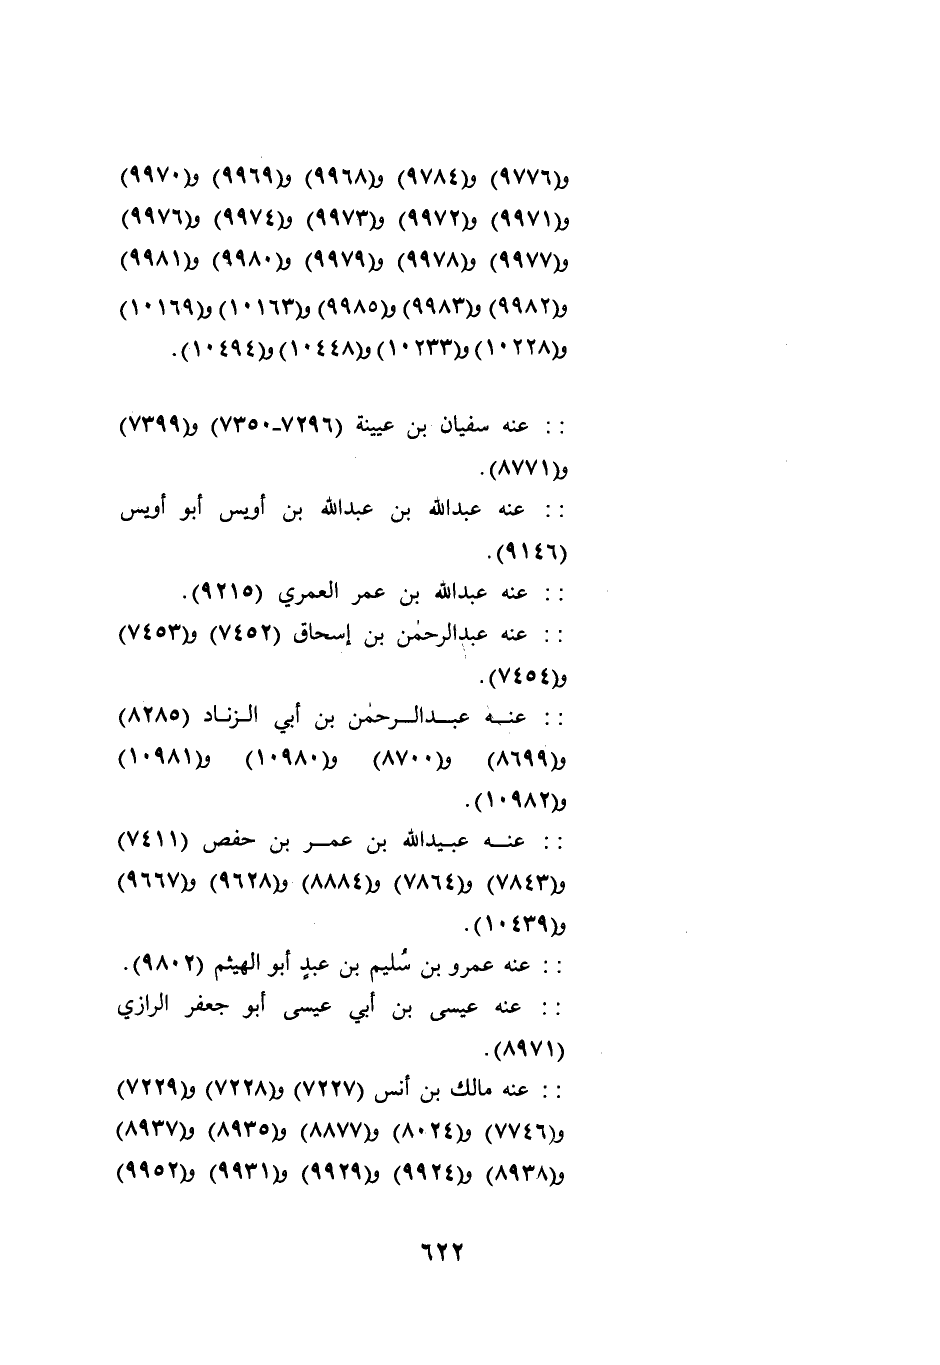 و(٩٧٧٦) و(٩٧٨٤) و(٩٩٦٨) و(٩٩٦٩) و(٩٩٧٠)
و(٩٩٧١) و(٩٩٧٢) و(٩٩٧٣) و(٩٩٧٤) و(٩٩٧٦)
و(٩٩٧٧) و(٩٩٧٨) و(٩٩٧٩) و(٩٩٨٠) و(٩٩٨١)
و(٩٩٨٢) و(٩٩٨٣) و(٩٩٨٥) و(١٠١٦٣) و(١٠١٦٩)
و(١٠٢٢٨) و(١٠٢٣٣) و(١٠٤٤٨) و(١٠٤٩٤).
:: عنه سفيان بن عيينة (٧٢٩٦-٧٣٥٠) و(٧٣٩٩)
و(٨٧٧١).
:: عنه عبدالله بن عبدالله بن أويس أبو أويس
(٩١٤٦).
:: عنه عبدالله بن عمر العمري (٩٢١٥).
:: عنه عبدالرحمٰن بن إسحاق (٧٤٥٢) و(٧٤٥٣)
و(٧٤٥٤).
:: عنـه عبـدالـرحمٰن بن أبي الـزنـاد (٨٢٨٥)
و(٨٦٩٩) و(٨٧٠٠) و(١٠٩٨٠) و(١٠٩٨١)
و(١٠٩٨٢).
:: عنـه عبـيدالله بن عمـر بن حفص (٧٤١١)
و(٧٨٤٣) و(٧٨٦٤) و(٨٨٨٤) و(٩٦٢٨) و(٩٦٦٧)
و(١٠٤٣٩).
:: عنه عمرو بن سُليم بن عبدٍ أبو الهيثم (٩٨٠٢).
:: عنه عيسى بن أبي عيسى أبو جعفر الرازي
(٨٩٧١).
:: عنه مالك بن أنس (٧٢٢٧) و(٧٢٢٨) و(٧٢٢٩)
و(٧٧٤٦) و(٨٠٢٤) و(٨٨٧٧) و(٨٩٣٥) و(٨٩٣٧)
و(٨٩٣٨) و(٩٩٢٤) و(٩٩٢٩) و(٩٩٣١) و(٩٩٥٢)
٦٢٢